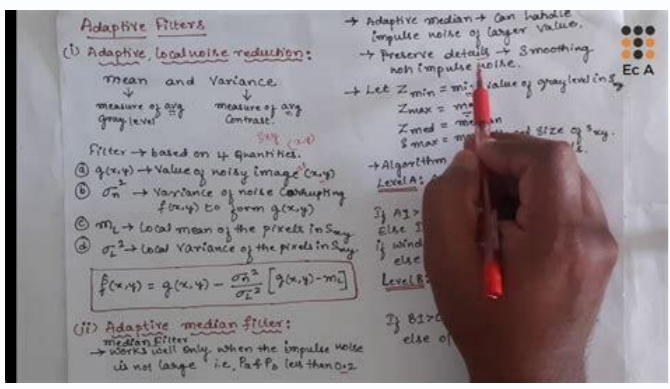 Adaptive Filters
(i) Adaptive, local noise reduction:
mean and Variance
measure of avg
gray level
measure of avg
Contrast.
Sxy (x,y)
Filter → based on 4 Quantities.
(a) g(x,y) → Value of noisy image at (x,y)
(b) σn² → Variance of noise Corrupting
f(x,y) to form g(x,y)
(c) mL → Local mean of the pixels in Sxy
(d) σL² → Local Variance of the pixels in Sxy
f̂(x,y) = g(x,y) - σn²/σL² [g(x,y) - mL]
(ii) Adaptive median filter:
median Filter
→ works well only when the impulse noise
is not large i.e, Pa & Pb less than 0.2
→ Adaptive median → Can handle
impulse noise of larger value.
→ Preserve details → Smoothing
non impulse noise.
→ Let Zmin = min value of gray level in Sxy
Zmax =
Zmed = median
Smax = size of Sxy.
→ Algorithm
Level A:
If A1>
Else
if wind
else
Level B:
If B1>
else
Ec A